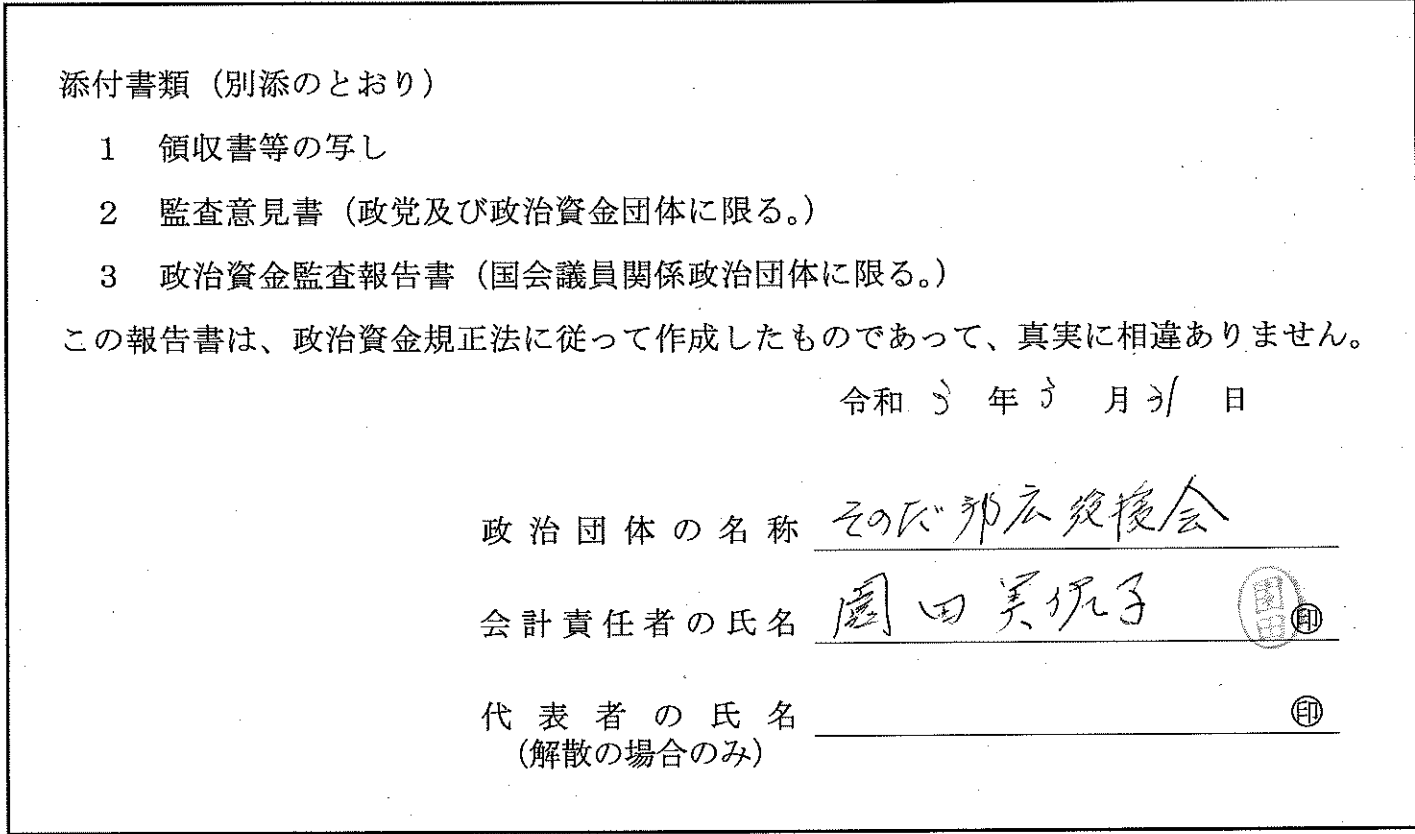 添付書類（別添のとおり）
1 領収書等の写し
2 監査意見書（政党及び政治資金団体に限る。）
3 政治資金監査報告書（国会議員関係政治団体に限る。）
この報告書は、政治資金規正法に従って作成したものであって、真実に相違ありません。
令和 3 年 3 月 31 日
政治団体の名称 そのだ 広後援会
会計責任者の氏名 園田美 子 園田 印
代表者の氏名 印
(解散の場合のみ)